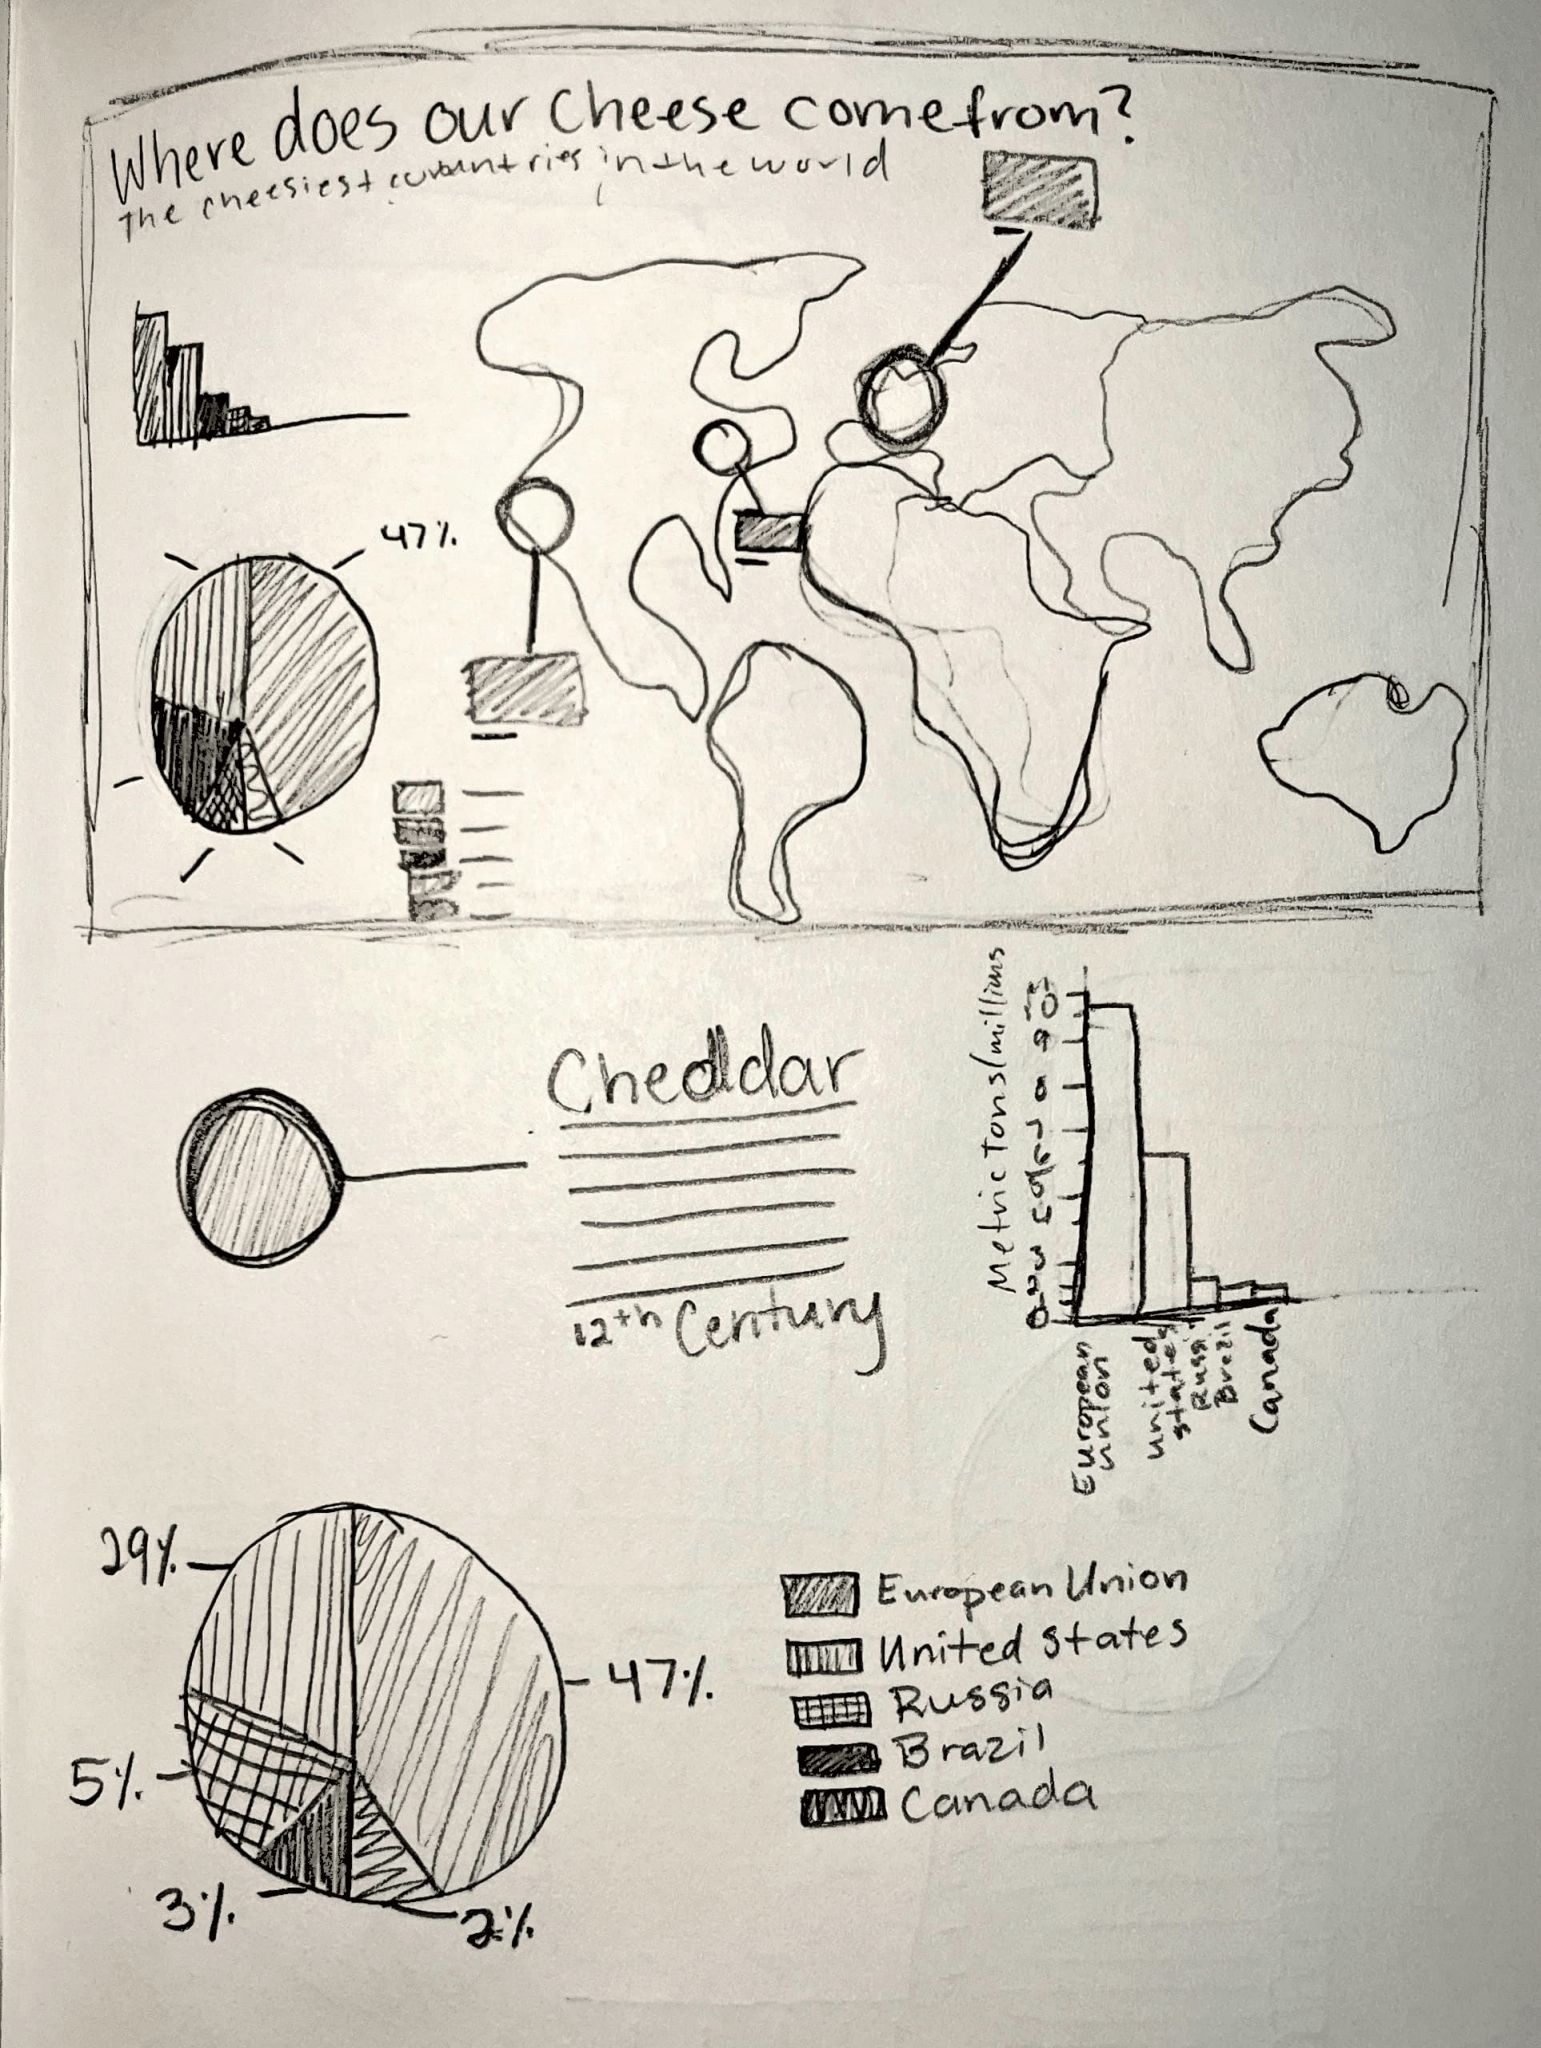 Where does our Cheese come from?
The cheesiest countries in the world
47%
Cheddar
12th Century
Metric Tons/millions
European
Union
United
States
Russia
Brazil
Canada
29%
47%
5%
3%
2%
European Union
United States
Russia
Brazil
Canada